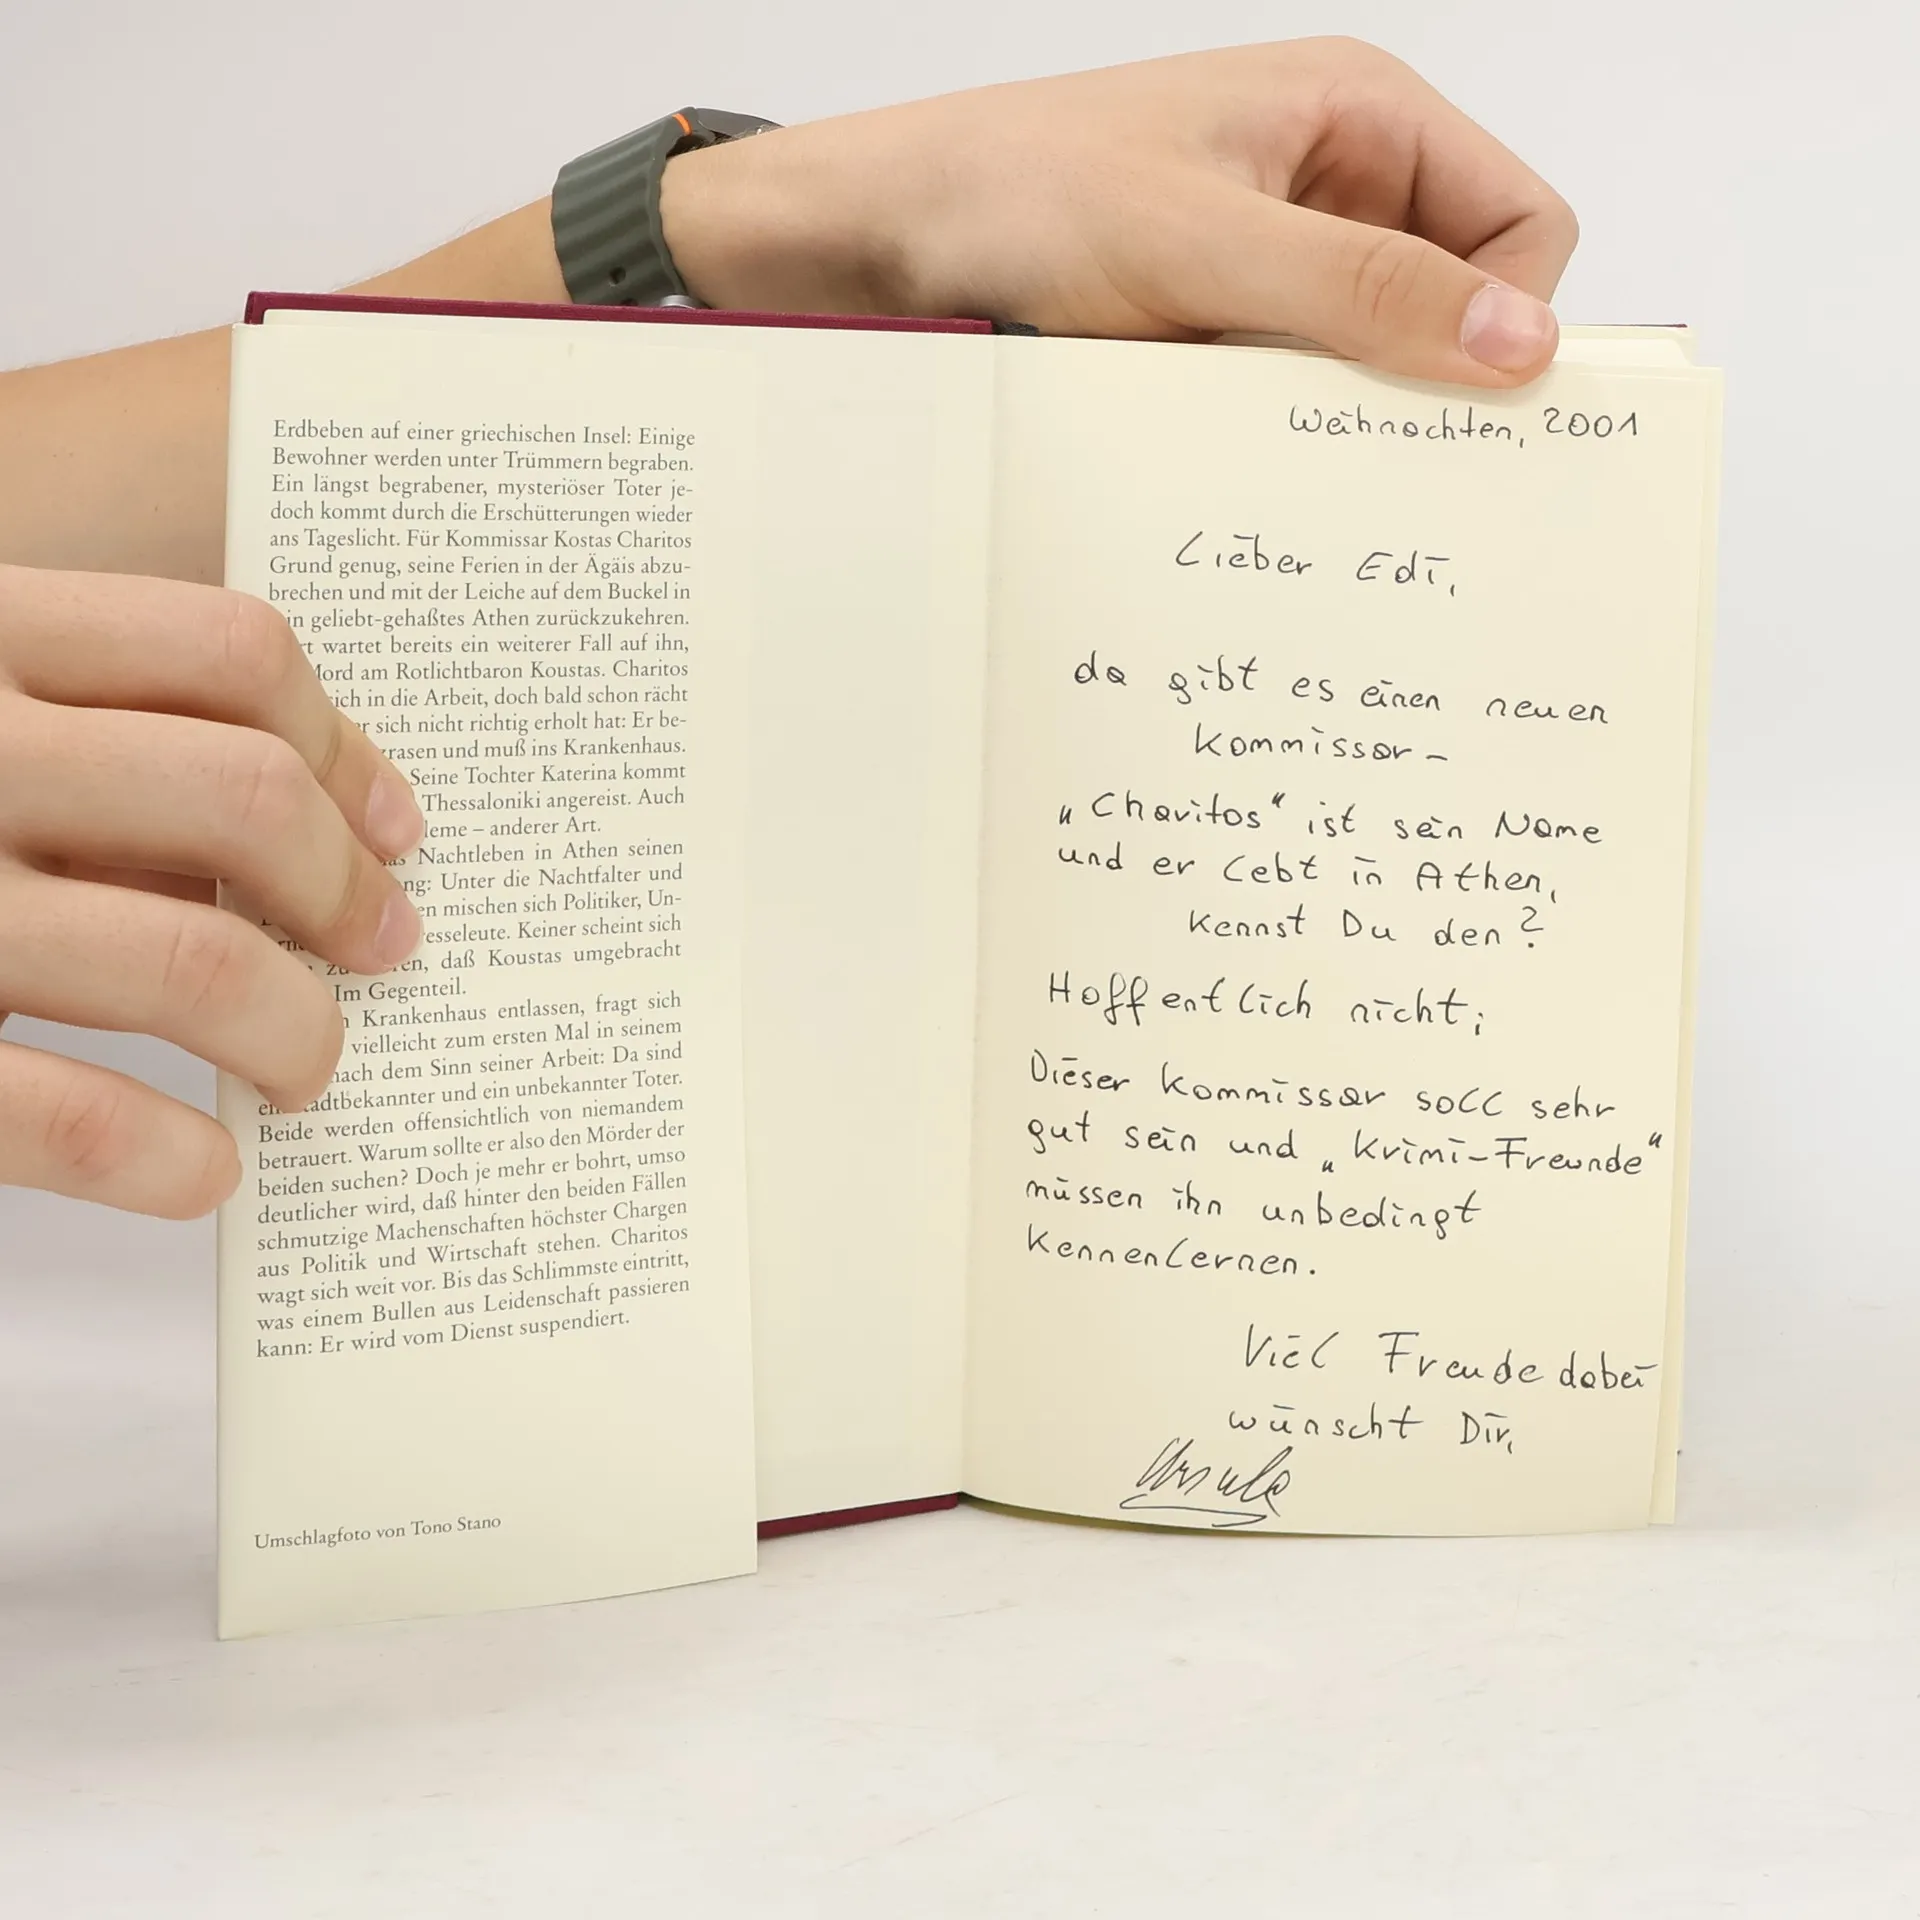 Erdbeben auf einer griechischen Insel: Einige
Bewohner werden unter Trümmern begraben.
Ein längst begrabener, mysteriöser Toter je-
doch kommt durch die Erschütterungen wieder
ans Tageslicht. Für Kommissar Kostas Charitos
Grund genug, seine Ferien in der Ägäis abzu-
brechen und mit der Leiche auf dem Buckel in
geliebt-gehaßtes Athen zurückzukehren.
wartet bereits ein weiterer Fall auf ihn,
am Rotlichtbaron Koustas. Charitos
in die Arbeit, doch bald schon rächt
sich nicht richtig erholt hat: Er be-
und muß ins Krankenhaus.
Seine Tochter Katerina kommt
Thessaloniki angereist. Auch
– anderer Art.
Nachtleben in Athen seinen
Unter die Nachtfalter und
mischen sich Politiker, Un-
Keiner scheint sich
daß Koustas umgebracht
Im Gegenteil.
Krankenhaus entlassen, fragt sich
vielleicht zum ersten Mal in seinem
nach dem Sinn seiner Arbeit: Da sind
und ein unbekannter Toter.
Beide werden offensichtlich von niemandem
betrauert. Warum sollte er also den Mörder der
beiden suchen? Doch je mehr er bohrt, umso
deutlicher wird, daß hinter den beiden Fällen
schmutzige Machenschaften höchster Chargen
aus Politik und Wirtschaft stehen. Charitos
wagt sich weit vor. Bis das Schlimmste eintritt,
was einem Bullen aus Leidenschaft passieren
kann: Er wird vom Dienst suspendiert.
Umschlagfoto von Tono Stano
Weihnachten, 2001
Lieber Edi,
da gibt es einen neuen
Kommissar –
„Charitos“ ist sein Name
und er lebt in Athen,
kennst Du den?
Hoffentlich nicht;
Dieser Kommissar soll sehr
gut sein und „Krimi-Freunde“
müssen ihn unbedingt
kennenlernen.
Viel Freude dabei
wünscht Dir,
Ursula